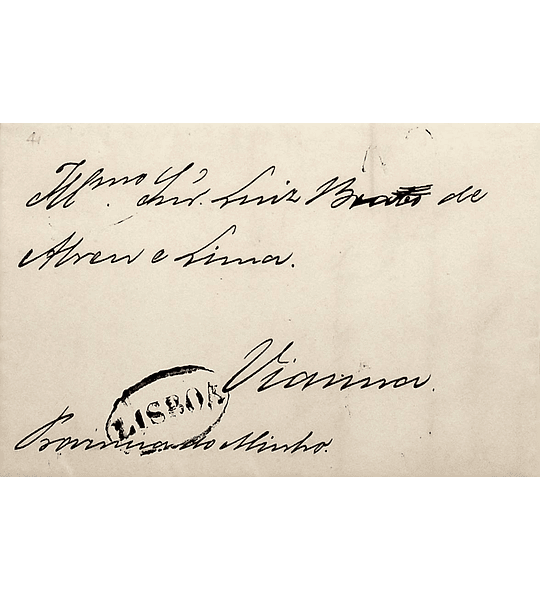 41
Illmo. Snr. Luiz de
Abreu e Lima.
Vianna.
LISBOA
Provincia do Minho.